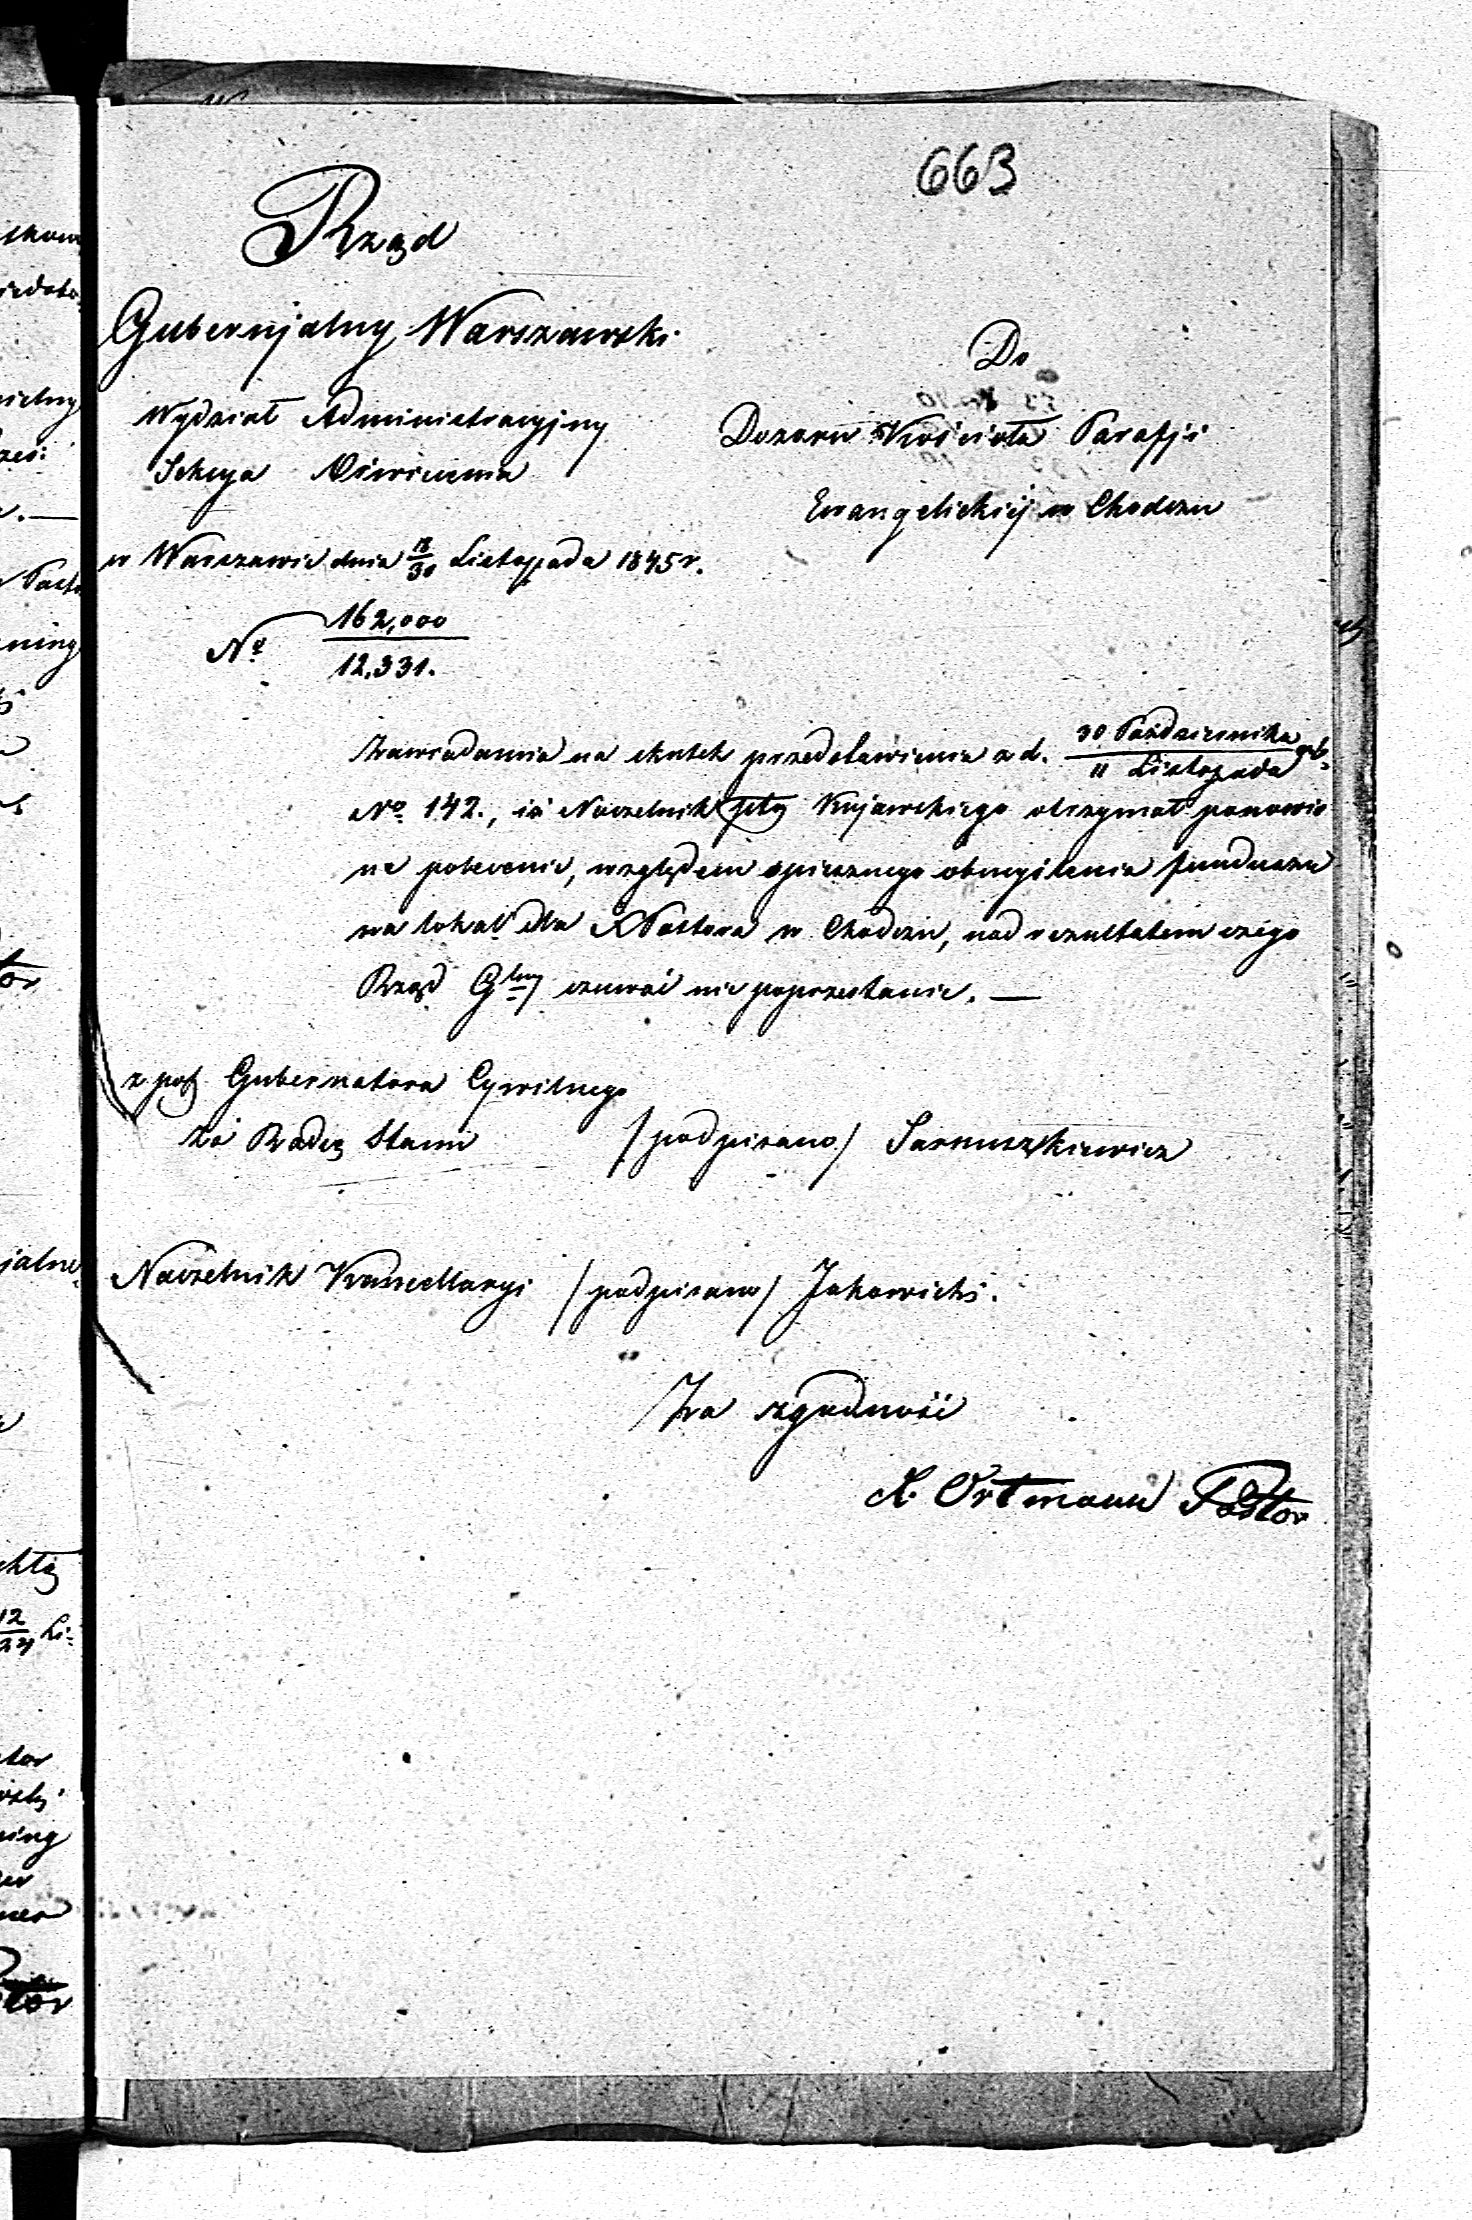 663
Rząd
Gubernjalny Warszawski.
Wydział Administracyjny
Sekcya
w Warszawie dnia 18/30 Listopada 1845 r.
No 162,000/12,331.
Do
Dozoru Kościoła Parafji
Ewangelickiéj w Chodczu
Zawiadamia na skutek przedstawienia z d. 30 Października/11 Listopada rb.
No 142., iż Naczelnik Kujawskiego otrzymał ponowio
ne polecenie, względem spiesznego obmyślenia funduszu
na lokal dla X Pastora w Chodczu, nad rezultatem czego
Rząd Glny czuwać nie poprzestanie. —
z pol. Gubernatora Cywilnego
Radcy Stanu /podpisano/
Naczelnik Kancellaryi /podpisano/
Za zgodność
K. Ortmann Pastor